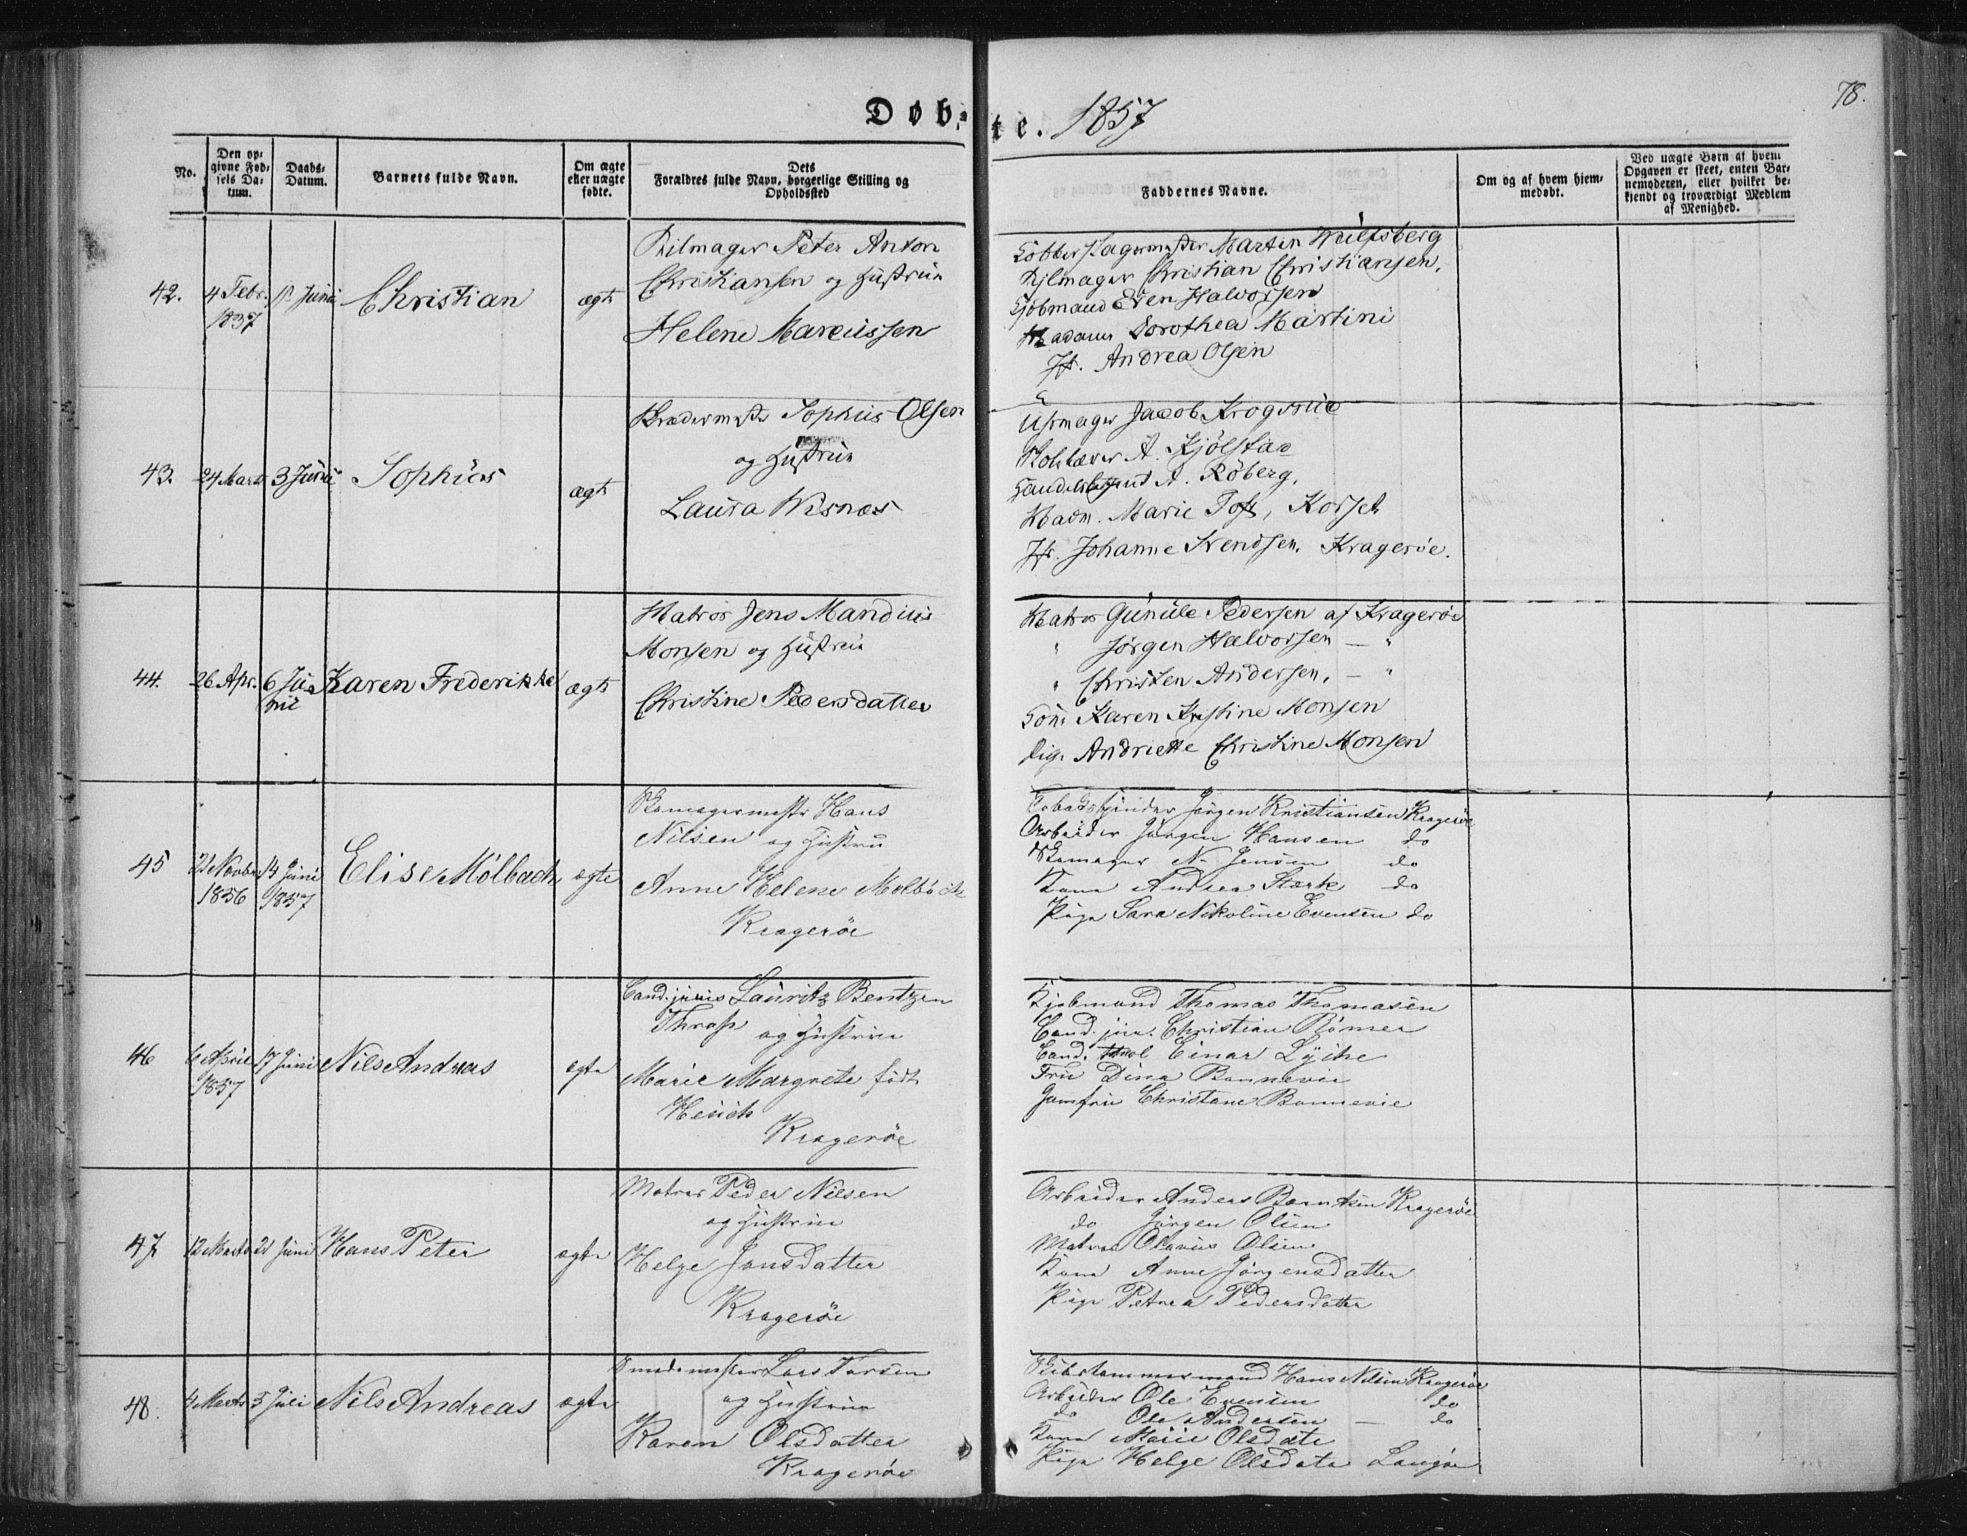 78.
Døb-te. 1857
No.
Den op-
givne Fød-
sels Da-
tum.
Daabs-
Datum.
Barnets fulde Navn.
Om ægte
eller uægte
fødte.
Dets
Forældres fulde Navn, borgerlige Stilling og
Opholdssted
Faddernes Navne.
Om og af hvem hjem-
medøbt.
Ved uægte Børn af hvem
Opgaven er skeet, enten Bar-
nemoderen, eller hvilket be-
kjendt og troværdigt Medlem
af Menighed.
42.
4 Febr.
1857
Juni
Christian
ægte
Peter Anton
Christiansen og Hustrue
Helene Marcussen
Martin Wulfsberg
Christian Christiansen,
Kjøbmand Even Halvorsen
Madame Dorothea Martini
Jfr. Andrea Olsen
43.
24 Marts
3 Juni
Sophus
ægte
Sophus Olsen
og Hustrue
Laura Wisnæs
Urmager Jacob Krogsrue
A. Kjølstad
A. Röberg,
Madm. Marie Toft, Korset
Jfr. Johanne Svendsen, Kragerøe.
44.
26 Apr.
6 Ju-
nii
Karen Frederikke
ægte
Matros Jens Mandius
Monsen og Hustrue
Christine Pedersdatter
Matros Gunule Pedersen af Kragerøe
" Jørgen Halvorsen — "
" Christen Andersen, — "
Kone Karen Kristine Monsen
Pige Andriette Christine Monsen
45
21 Novbr
1856
14 Juni
1857
Elise Mølbach
ægte
Skomagermestr Hans
Nilsen og Hustru
Anne Helene Molbach
Kragerøe
Tobaksspinder Jørgen Kristiansen Kragerøe
Arbeider Jørgen Hansen do
Skomager N. Jensen do
Kone Andrea Stærk do
Pige Sara Nikoline Evensen do
46
6 April
1857
17 Juni
Nils Andreas
ægte
Cand. juris Lauritz Bentzen
Thrap og Hustrue
Marie Margrete født
Heuch
Kragerøe
Kjøbmand Thomas Thomasen
Cand. jur. Christian Rømer
Cand. theol Einar Lyche
Frue Dina Bonnevie
Jomfrue Christane Bonnevie
47
12 Marts
21 Juni
Hans Peter
ægte
Matros Peder Nilsen
og Hustrue
Helge Jonsdatter
Kragerøe
Arbeider Anders Berntsen Kragerøe
do Jørgen Olsen
Matros Olavus Olsen
Kone Anne Jørgensdatter
Pige Petrea Pedersdatter
48.
4 Marts
5 Juli
Nils Andreas
ægte
Smedemester Lars Larsen
og Hustrue
Karen Olsdatter
Kragerøe
Skibstømmermand Hans Nilsen Kragerøe
Arbeider Ole Evensen do
do Ole Andersen — do
Kone Marie Olsdatr
Pige Helge Olsdatr Langøe